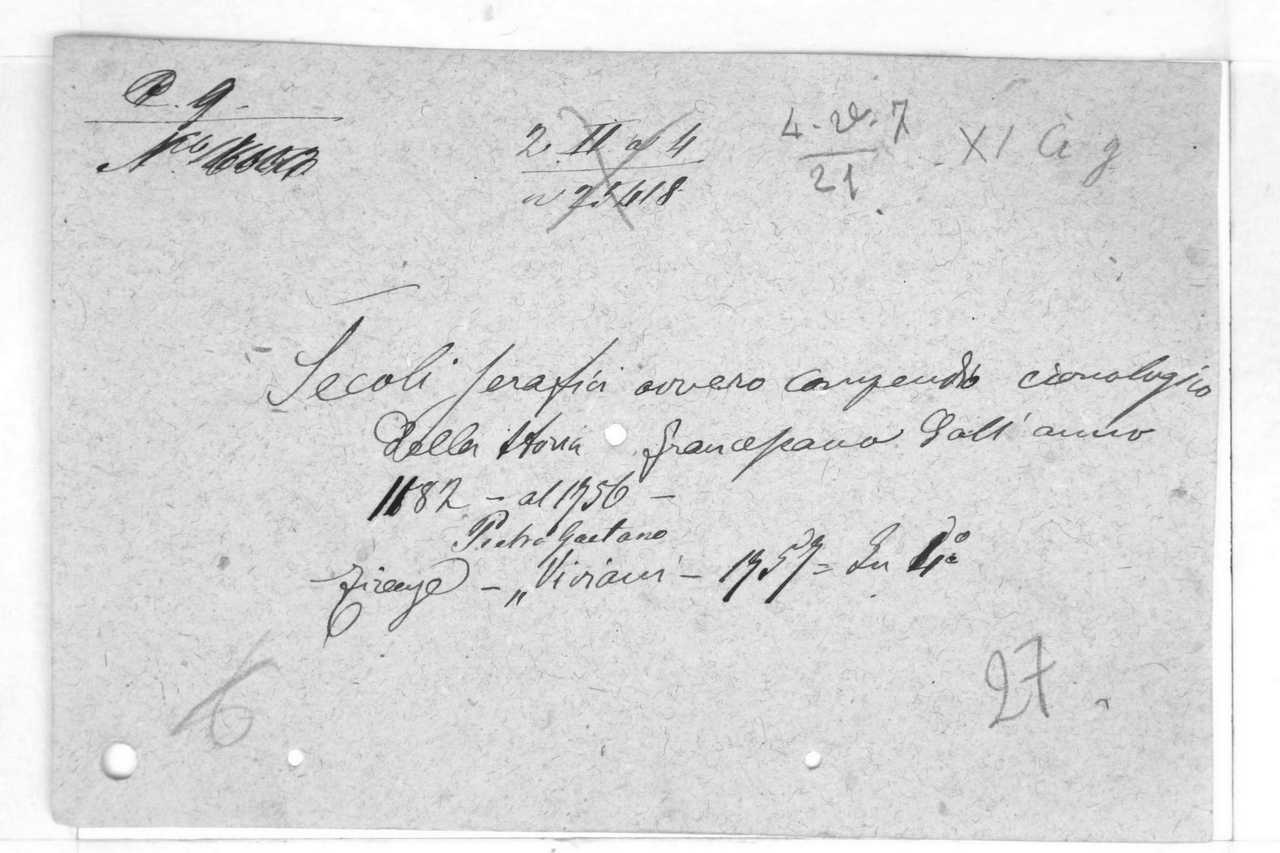 P. g.
2. II a 4
25418
4. 7
21
XI C g
Secoli serafici ovvero compendio cronologico
della storia francescana dall' anno
1182 - al 1756 -
Pietro Gaetano
Firenze - „Viviani - 1757 = In 4°
6
27.